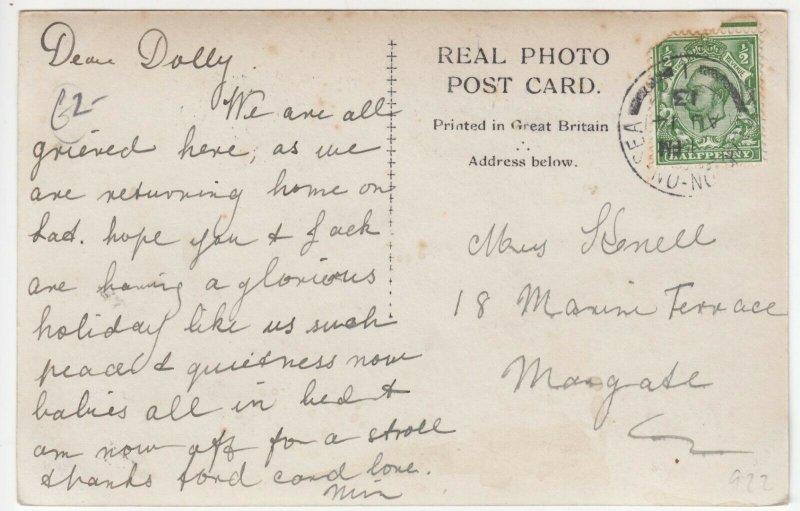 Dear Dolly.
£2-
We are all
grieved here, as we
are returning home on
Sat. hope you & Jack
are having a glorious
holiday like us such
peace & quietness now
babies all in bed &
am now off for a stroll
& thanks ford card love.
Min
REAL PHOTO
POST CARD.
Printed in Great Britain
Address below.
½ ½
HALFPENNY
SEA
ON-NO
AU
13
PM
Mrs
18 Marine Terrace
Margate
922